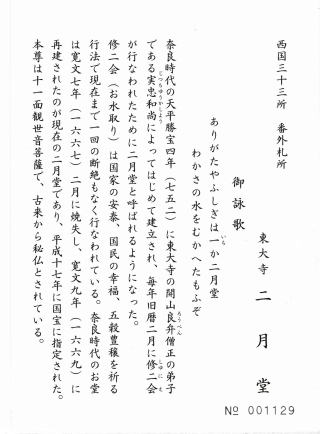 西国三十三所 番外札所
東大寺 二月堂
御詠歌
ありがたやふしぎは一か二月堂
いち
わかさの水をむかへたもふぞ
奈良時代の天平勝宝四年(七五二)に東大寺の開山良弁僧正の弟子
ろうべん
である実忠和尚によってはじめて建立され、毎年旧暦二月に修二会
じつちゆうかしよう
しゆにえ
が行なわれたために二月堂と呼ばれるようになった。
修二会(お水取り)は国家の安泰、国民の幸福、五穀豊穣を祈る
行法で現在まで一回の断絶もなく行なわれている。奈良時代のお堂
は寛文七年(一六六七)二月に焼失し、寛文九年(一六六九)に
再建されたのが現在の二月堂であり、平成十七年に国宝に指定された。
本尊は十一面観世音菩薩で、古来から秘仏とされている。
No 001129